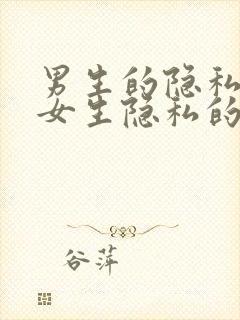 男生的隐私
女生隐私的
谷萍